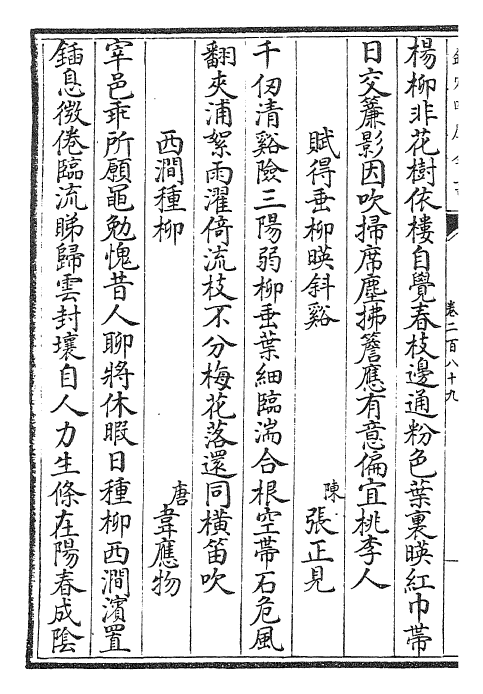 卷二百八十九
楊柳非花樹依樓自覺春枝邊通粉色葉裏暎紅巾帶
日交簾影因吹掃席塵拂簷應有意偏宜桃李人
賦得垂柳暎斜谿
陳張正見
千仞清谿險三陽弱柳垂葉細臨湍合根空帶石危風
翻夾浦絮雨濯倚流枝不分梅花落還同橫笛吹
西澗種柳
唐韋應物
宰邑乖所願黽勉愧昔人聊將休暇日種柳西澗濱置
鍤息微倦臨流睇歸雲封壤自人力生條在陽春成陰